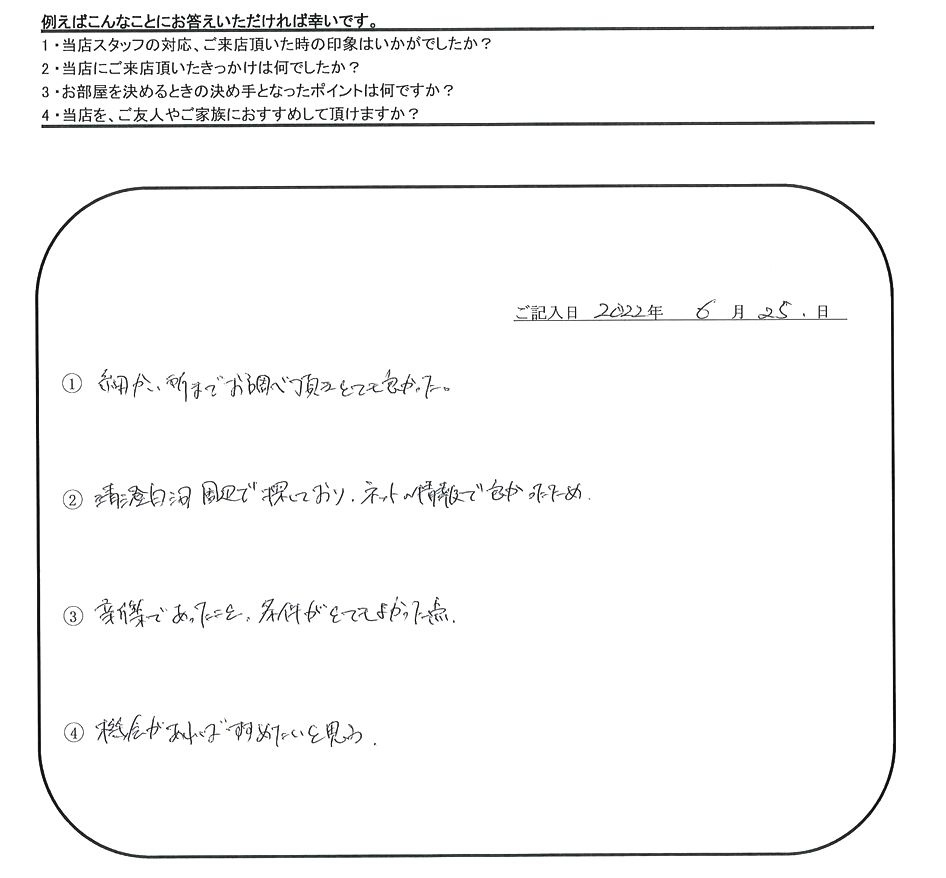 例えばこんなことにお答えいただければ幸いです。
1・当店スタッフの対応、ご来店頂いた時の印象はいかがでしたか？
2・当店にご来店頂いたきっかけは何でしたか？
3・お部屋を決めるときの決め手となったポイントは何ですか？
4・当店を、ご友人やご家族におすすめして頂けますか？
ご記入日 2022年 6月25.日
① 細かい所までお調べ頂きとても良かった。
② 清澄白河周辺で探しており、ネットの情報で良かったため.
③ 新築であったこと、条件がとてもよかった点.
④ 機会があればすすめたいと思う.